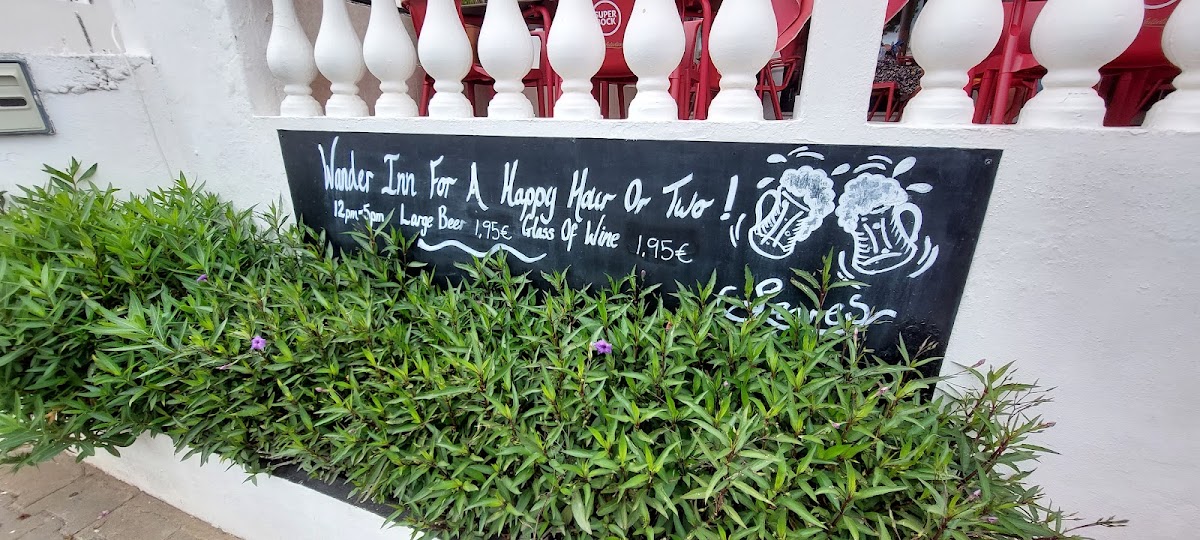 SUPER BOCK
Wander Inn For A Happy Hour Or Two !
12pm-5pm Large Beer 1,95€ Glass Of Wine 1,95€